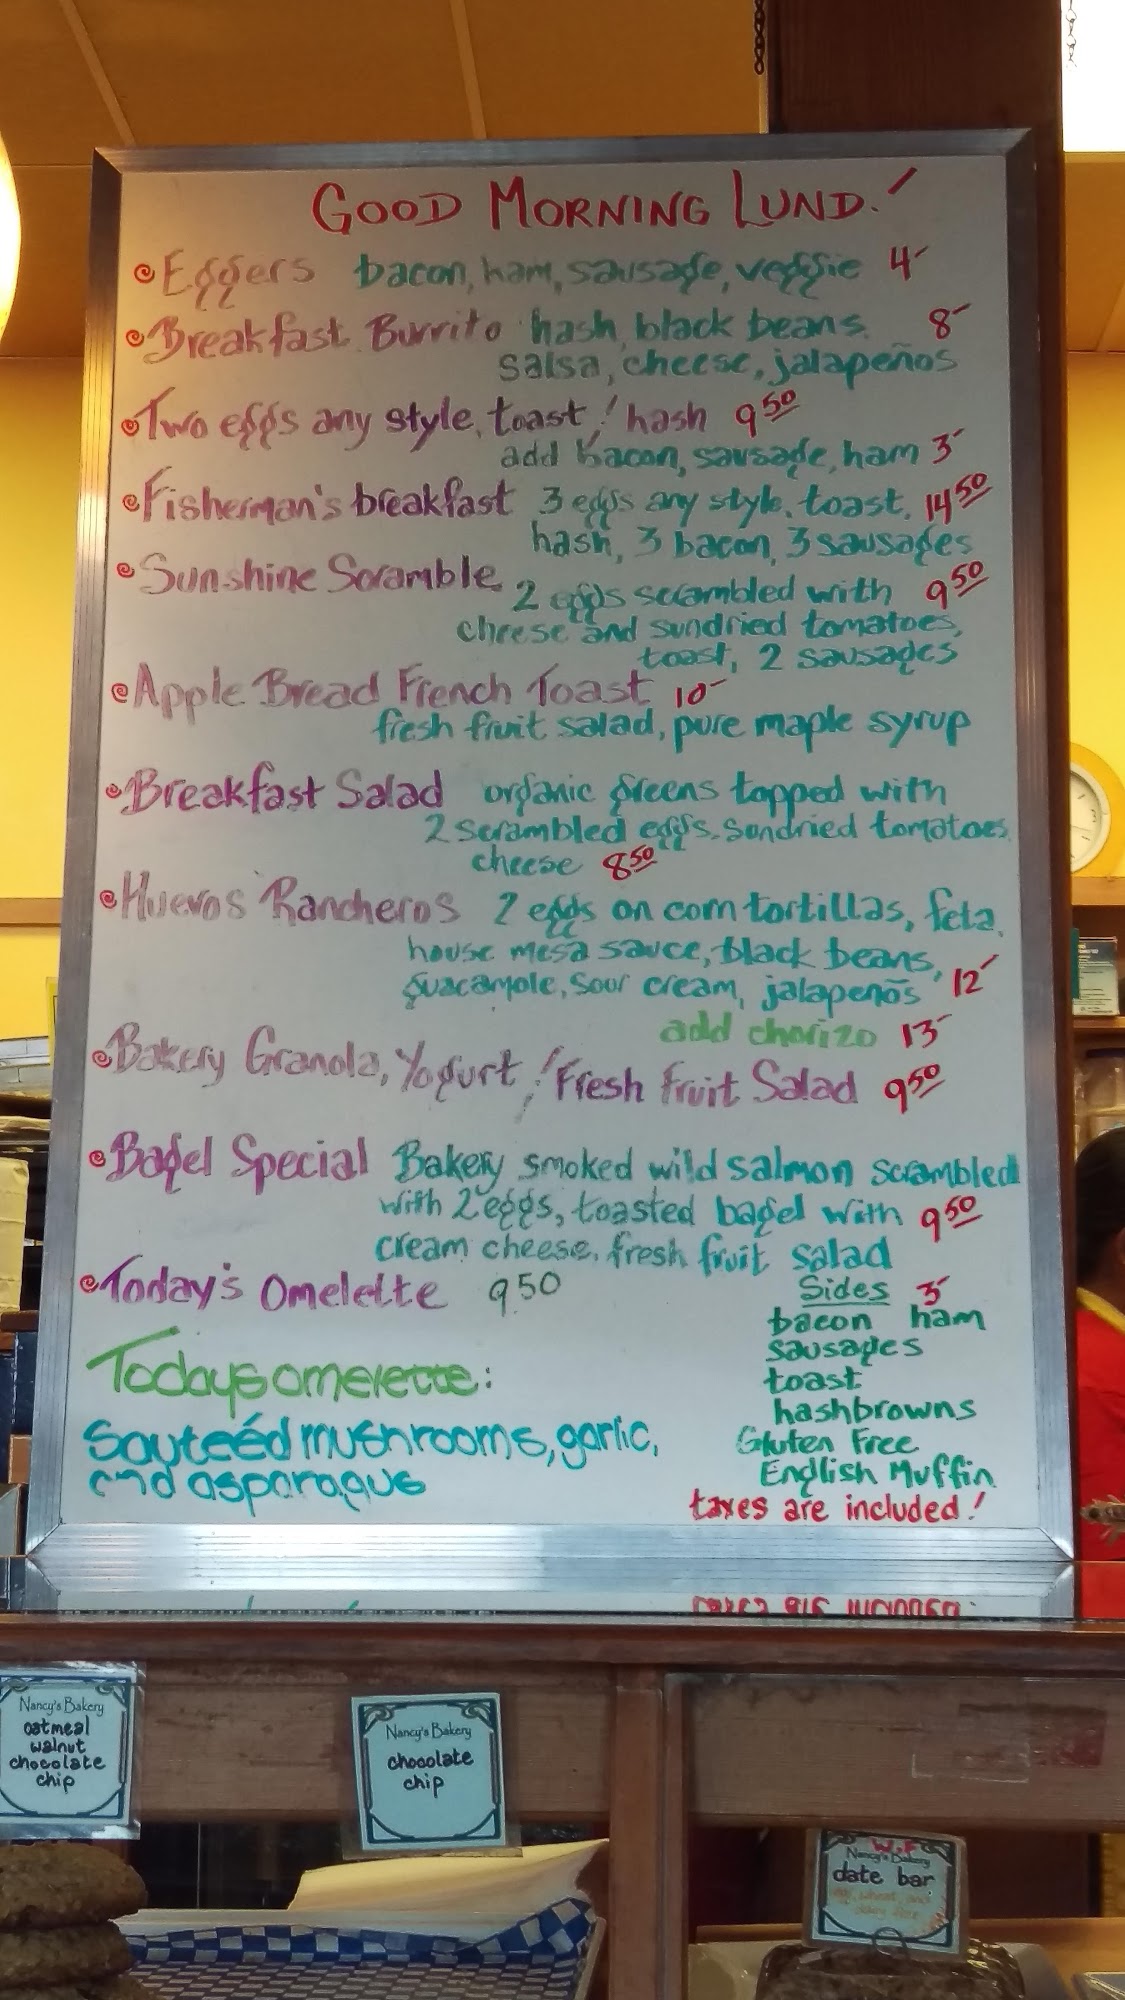 GOOD MORNING LUND!
Eggers bacon, ham, sausage, veggie 4-
Breakfast Burrito hash, black beans 8-
salsa, cheese, jalapeños
Two eggs any style, toast ! hash 9 50
add bacon, sausage, ham 3-
Fisherman's breakfast 3 eggs any style, toast, 14 50
hash, 3 bacon, 3 sausages
Sunshine Scramble 2 eggs scrambled with 9 50
cheese and sundried tomatoes,
toast, 2 sausages
Apple Bread French Toast 10-
fresh fruit salad, pure maple syrup
Breakfast Salad organic greens topped with
2 scrambled eggs, sundried tomatoes
cheese 8 50
Huevos Rancheros 2 eggs on corn tortillas, feta,
house mesa sauce, black beans,
guacamole, sour cream, jalapeños 12-
add chorizo 13-
Bakery Granola, Yogurt ! Fresh Fruit Salad 9 50
Bagel Special Bakery smoked wild salmon scrambled
with 2 eggs, toasted bagel with 9 50
cream cheese, fresh fruit salad
Today's Omelette 9.50
Sides 3-
bacon ham
sausages
toast
hashbrowns
Gluten Free
English Muffin
taxes are included!
Todays omelette:
Sauteéd mushrooms, garlic,
and asparagus
Nancy's Bakery
oatmeal
walnut
chocolate
chip
Nancy's Bakery
chocolate
chip
W.F
Nancy's Bakery
date bar